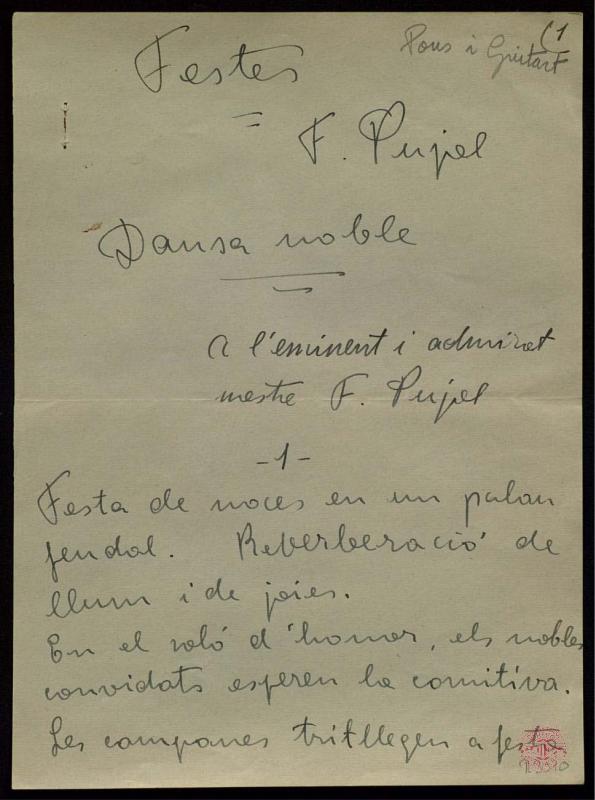 (1
Pons i Guitart
Festes
F. Pujol
Dansa noble
A l'eminent i admirat
mestre F. Pujol
-1-
Festa de noces en un palau
feudal. Reverberació de
llum i de joies.
En el saló d'honor, els nobles
convidats esperen la comitiva.
Les campanes tritllegen a festa